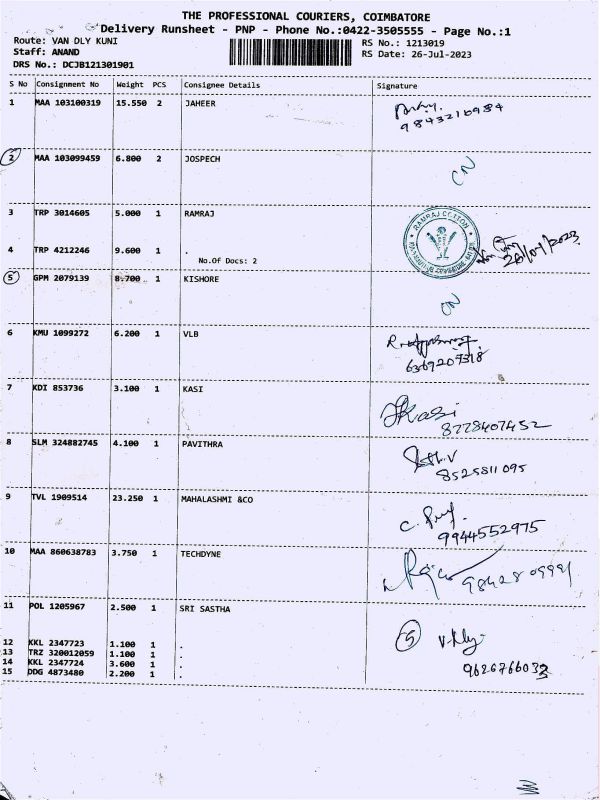 THE PROFESSIONAL COURIERS, COIMBATORE
Delivery Runsheet - PNP - Phone No.:0422-3505555 - Page No.:1
Route: VAN DLY KUNI
Staff: ANAND
DRS No.: DCJB121301901
RS No.: 1213019
RS Date: 26-Jul-2023
S No Consignment No Weight PCS Consignee Details Signature
1 MAA 103100319 15.550 2 JAHEER
9843216984
2 MAA 103099459 6.800 2 JOSPECH
CN
3 TRP 3014605 5.000 1 RAMRAJ
RAMRAJ COTTON
4 TRP 4212246 9.600 1 .
No.Of Docs: 2
26/07/2023
5 GPM 2079139 8.700 1 KISHORE
CN
6 KMU 1099272 6.200 1 VLB
6369207318
7 KDI 853736 3.100 1 KASI
Kasi
8778407452
8 SLM 324882745 4.100 1 PAVITHRA
8525811095
9 TVL 1909514 23.250 1 MAHALASHMI &CO
9944552975
10 MAA 860638783 3.750 1 TECHDYNE
11 POL 1205967 2.500 1 SRI SASTHA
5
12 KKL 2347723 1.100 1 .
13 TRZ 320012059 1.100 1 .
14 KKL 2347724 3.600 1 .
15 DDG 4873480 2.200 1 .
9626766032